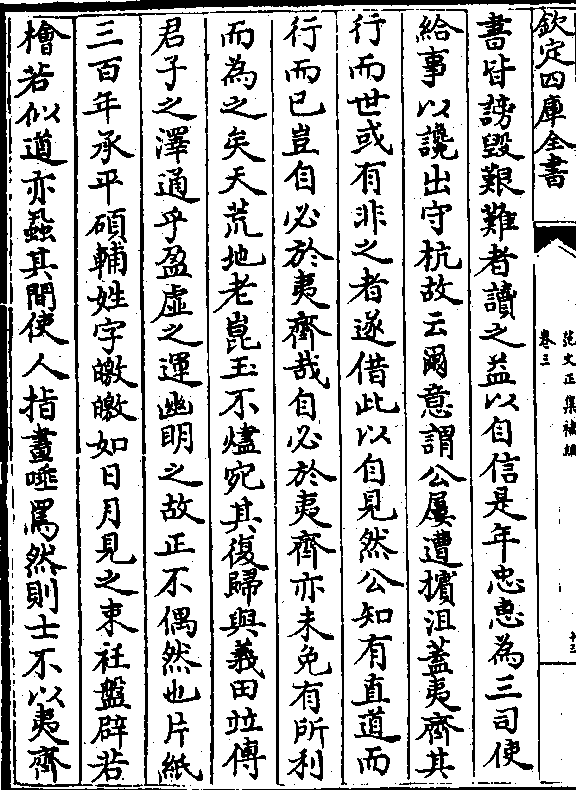 欽定四庫全書
范文正集補編
卷三
書皆謗毀艱難者讀之益以自信是年忠惠為三司使
給事以讒出守杭故云爾意謂公屢遭擯沮蓋夷齊其
行而世或有非之者遂借此以自見然公知有直道而
行而已豈自必於夷齊哉自必於夷齊亦未免有所利
而為之矣天荒地老崑玉不燼宛其復歸與義田竝傳
君子之澤通乎盈虛之運幽明之故正不偶然也片紙
三百年承平碩輔姓字皦皦如日月見之束衽盤辟若
檜若似道亦蝨其間使人指畫唾罵然則士不以夷齊